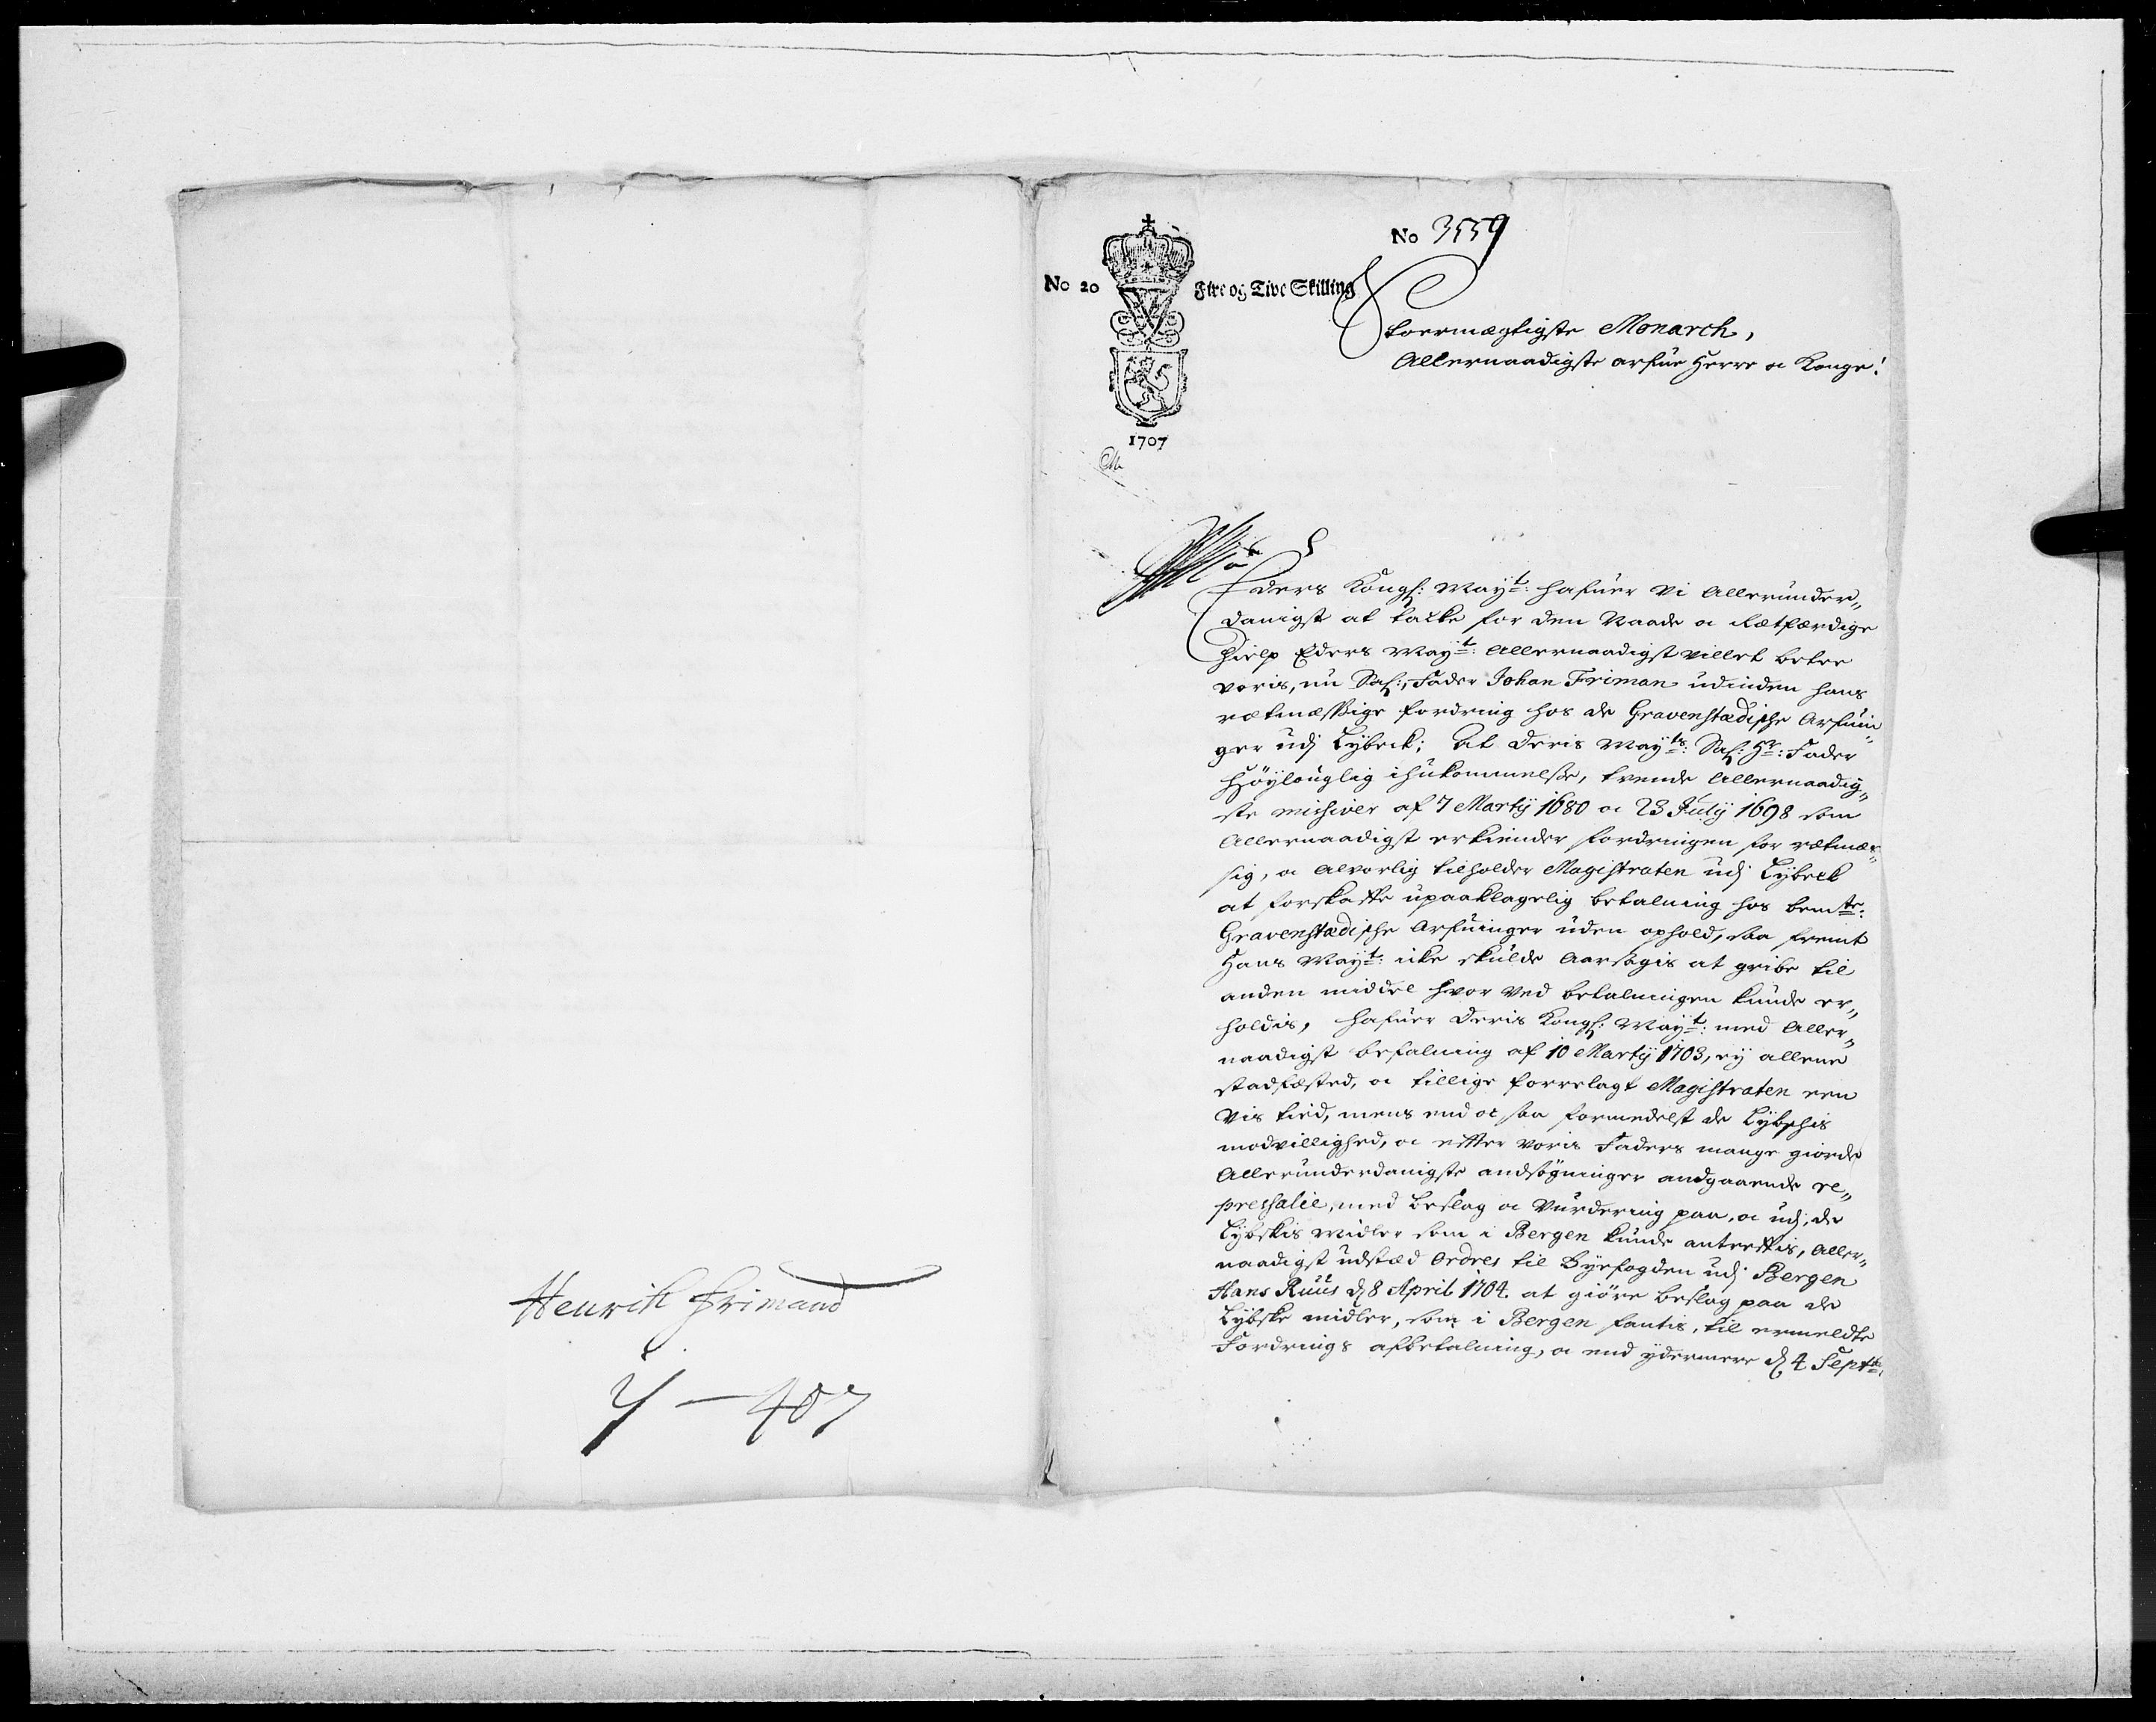 Henrik Frimand
4 — 407
No 3559
No 20 Fire og Tive Skilling
1707
Stoermægtigste Monarch,
Allernaadigste arfue Herre oc Konge!
Eders Kongl: Mayt: hafuer vi Allerunder„
danigst at takke for den Naade oc Rætfærdige
Hielp Eders Mayt: Allernaadigst villet betee
voris, nu Sal:, Fader Johan Friman udinden hans
rætmæssige fordring hos de Gravenstædische Arfuin„
ger udj Lybeck; At Deris Mayts: Sal: Hr: Fader
Høylouglig ihukommelse, tvende Allernaadig„
ste missiver af 7 Martij 1680 oc 23 Julij 1698 som
Allernaadigst erkiender fordringen for rætmæs„
sig, oc alvorlig tilholder Magistraten udj Lybeck
at forskaffe upaaklagelig betalning hos bemte:
Gravenstædische Arfuinger uden ophold, saa fremt
Hans Mayt: icke skulde aarsagis at gribe til
anden middel hvor ved betalningen kunde er„
holdis, hafuer Deris Kongl: Mayt: med Aller„
naadigst befalning af 10 Martij 1703, ej allene
stadfæsted, oc tillige forrelagt Magistraten een
vis tiid, mens end oc saa formedelst de Lybschis
modvillighed, oc efter voris Faders mange giorde
Allerunderdanigste andsøgninger andgaaende re„
pressalie, med beslag oc vurdering paa, oc udj, de
Lybskis midler som i Bergen kunde antreffis, Aller„
naadigst udstæd Ordres til Byefogden udj Bergen
Hans Ruus d 8 April 1704 at giøre beslag paa de
Lybske midler, som i Bergen fantis, til ermeldte
Fordrings afbetalning, oc end ydermere d 4 Septbr: